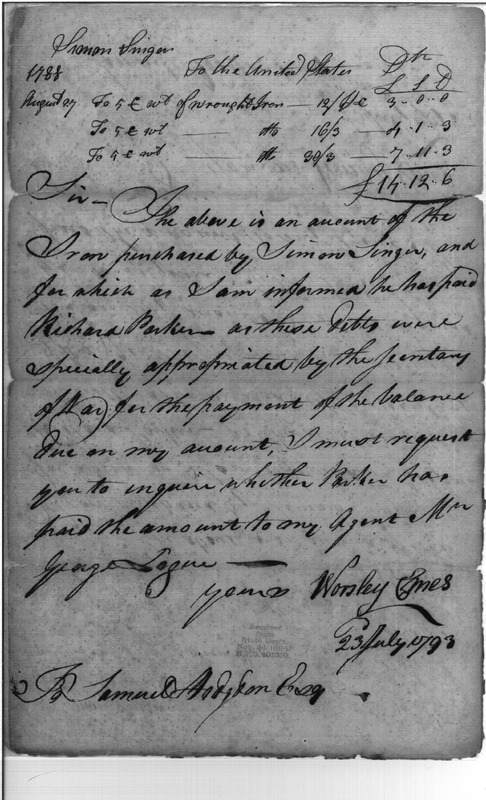 Simon Singer
1788
To the United States Dr
£ S D
August 27 To 5 C wt of wrought Iron — 12/ C 3..0..0
To 5 C wt — do 16/3 — 4..1..3
To 5 C wt — do 30/3 — 7..11..3
£14..12..6
Sir —
The above is an account of the
Iron purchased by Simon Singer, and
for which as I am informed he has paid
Richard Parker — as these debts were
specially appropriated by the secretary
of War, for the payment of the balance
due on my account, I must request
you to inquire whether Parker has
paid the amount to my Agent Mr
George Logue —
yours Worsley Emes
23d July, 1793
To Samuel Hodgdon Esq
Received
from